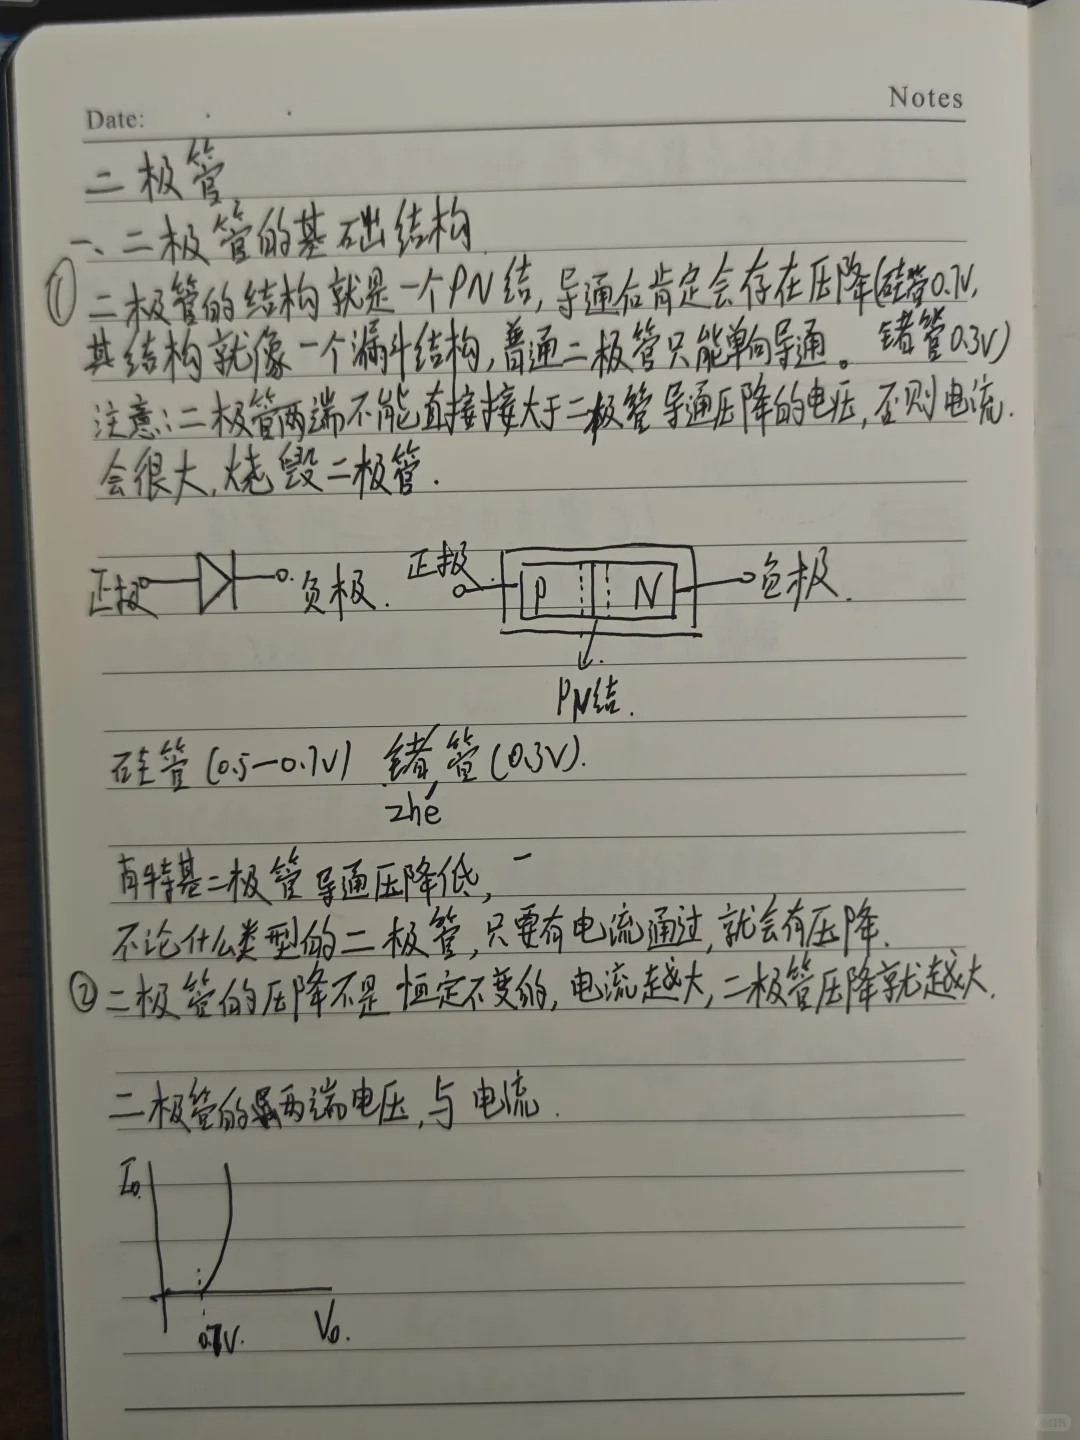 Notes
Date:
二极管
一、二极管的基础结构
① 二极管的结构就是一个PN结,导通后肯定会存在压降(硅管0.7V,
其结构就像一个漏斗结构,普通二极管只能单向导通。 锗管0.3V)
注意:二极管两端不能直接接大于二极管导通压降的电压,否则电流.
会很大,烧毁二极管.
正极 负极. 正极 P N 负极.
PN结.
硅管(0.5—0.7V) 锗管(0.3V).
zhé
肖特基二极管导通压降低,一
不论什么类型的二极管,只要有电流通过,就会有压降.
② 二极管的压降不是恒定不变的,电流越大,二极管压降就越大.
二极管的两端电压,与电流.
ID.
0.7V. VD.